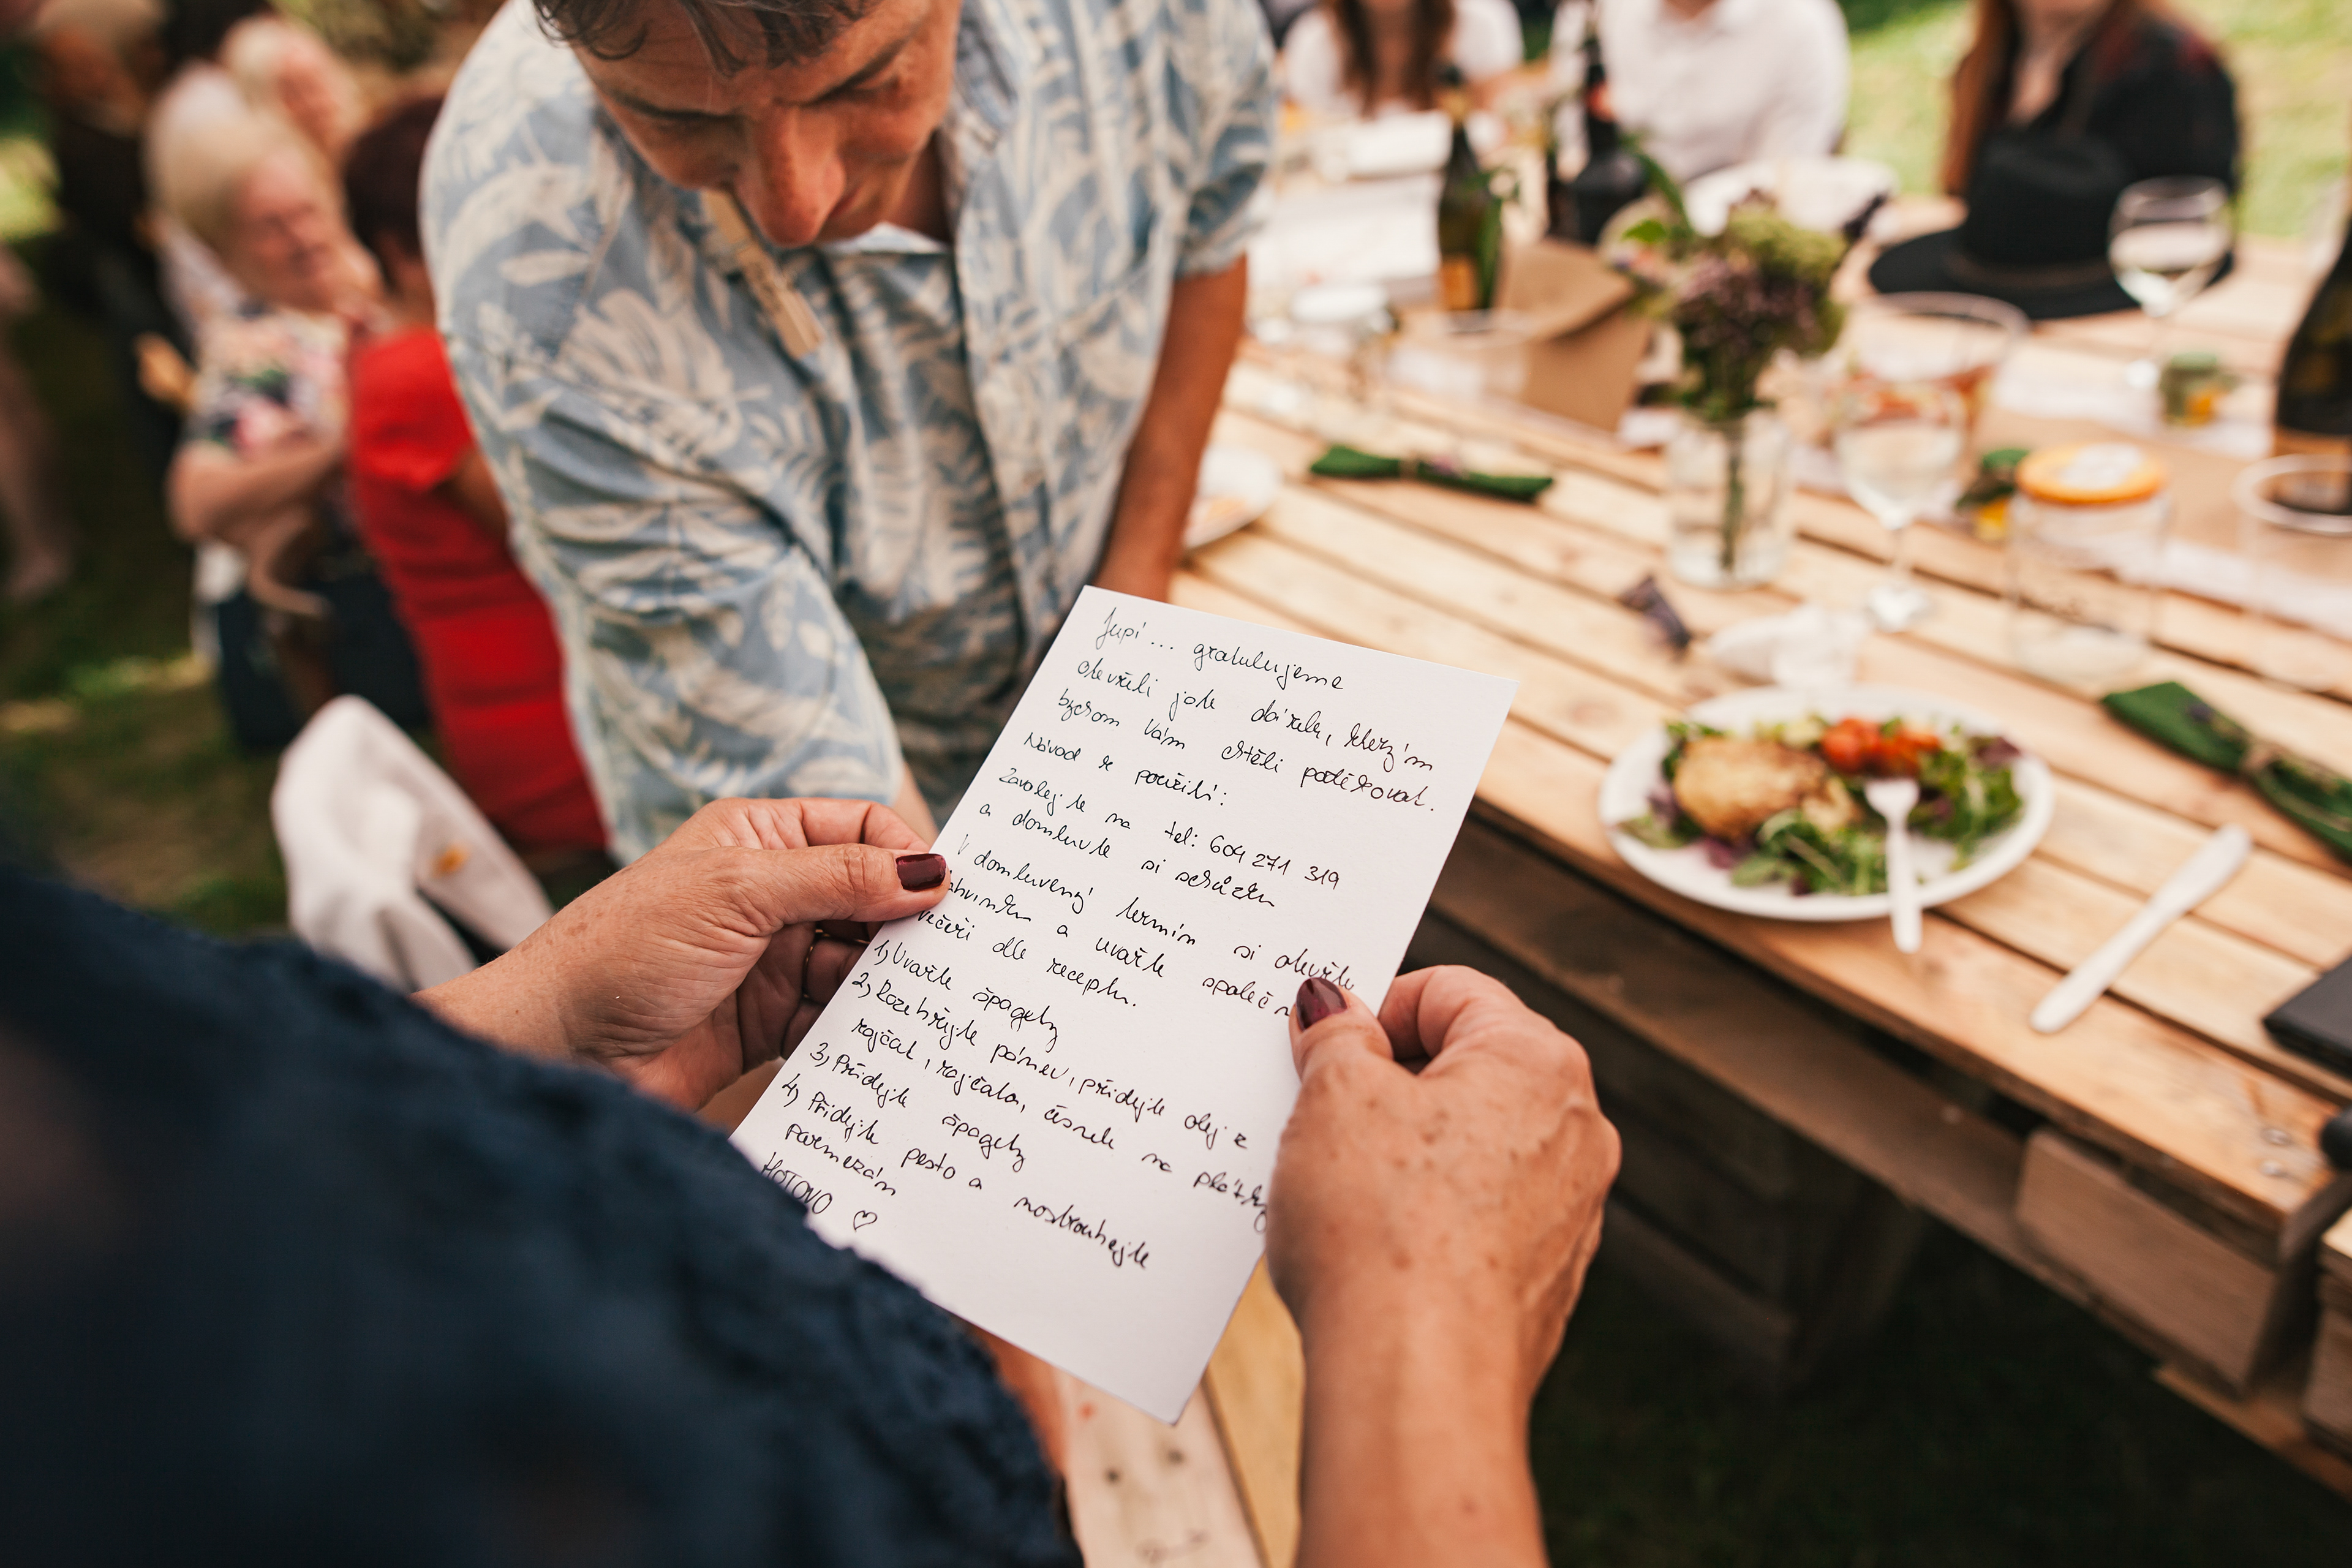 Jupí... gratulujeme
otevřeli jste dárek, kterým
bychom Vám chtěli poděkovat.
Návod k použití:
Zavolejte na tel: 604 271 319
a domluvte si schůzku
V domluvený termín si otevřete
a uvařte společn
večeři dle receptu.
1, Uvařte špagety
2, Rozehřejte pánev, přidejte olej z
rajčat, rajčata, česnek na plátky
3, Přidejte špagety
4, Přidejte pesto a nastrouhejte
parmezán
HOTOVO ♡